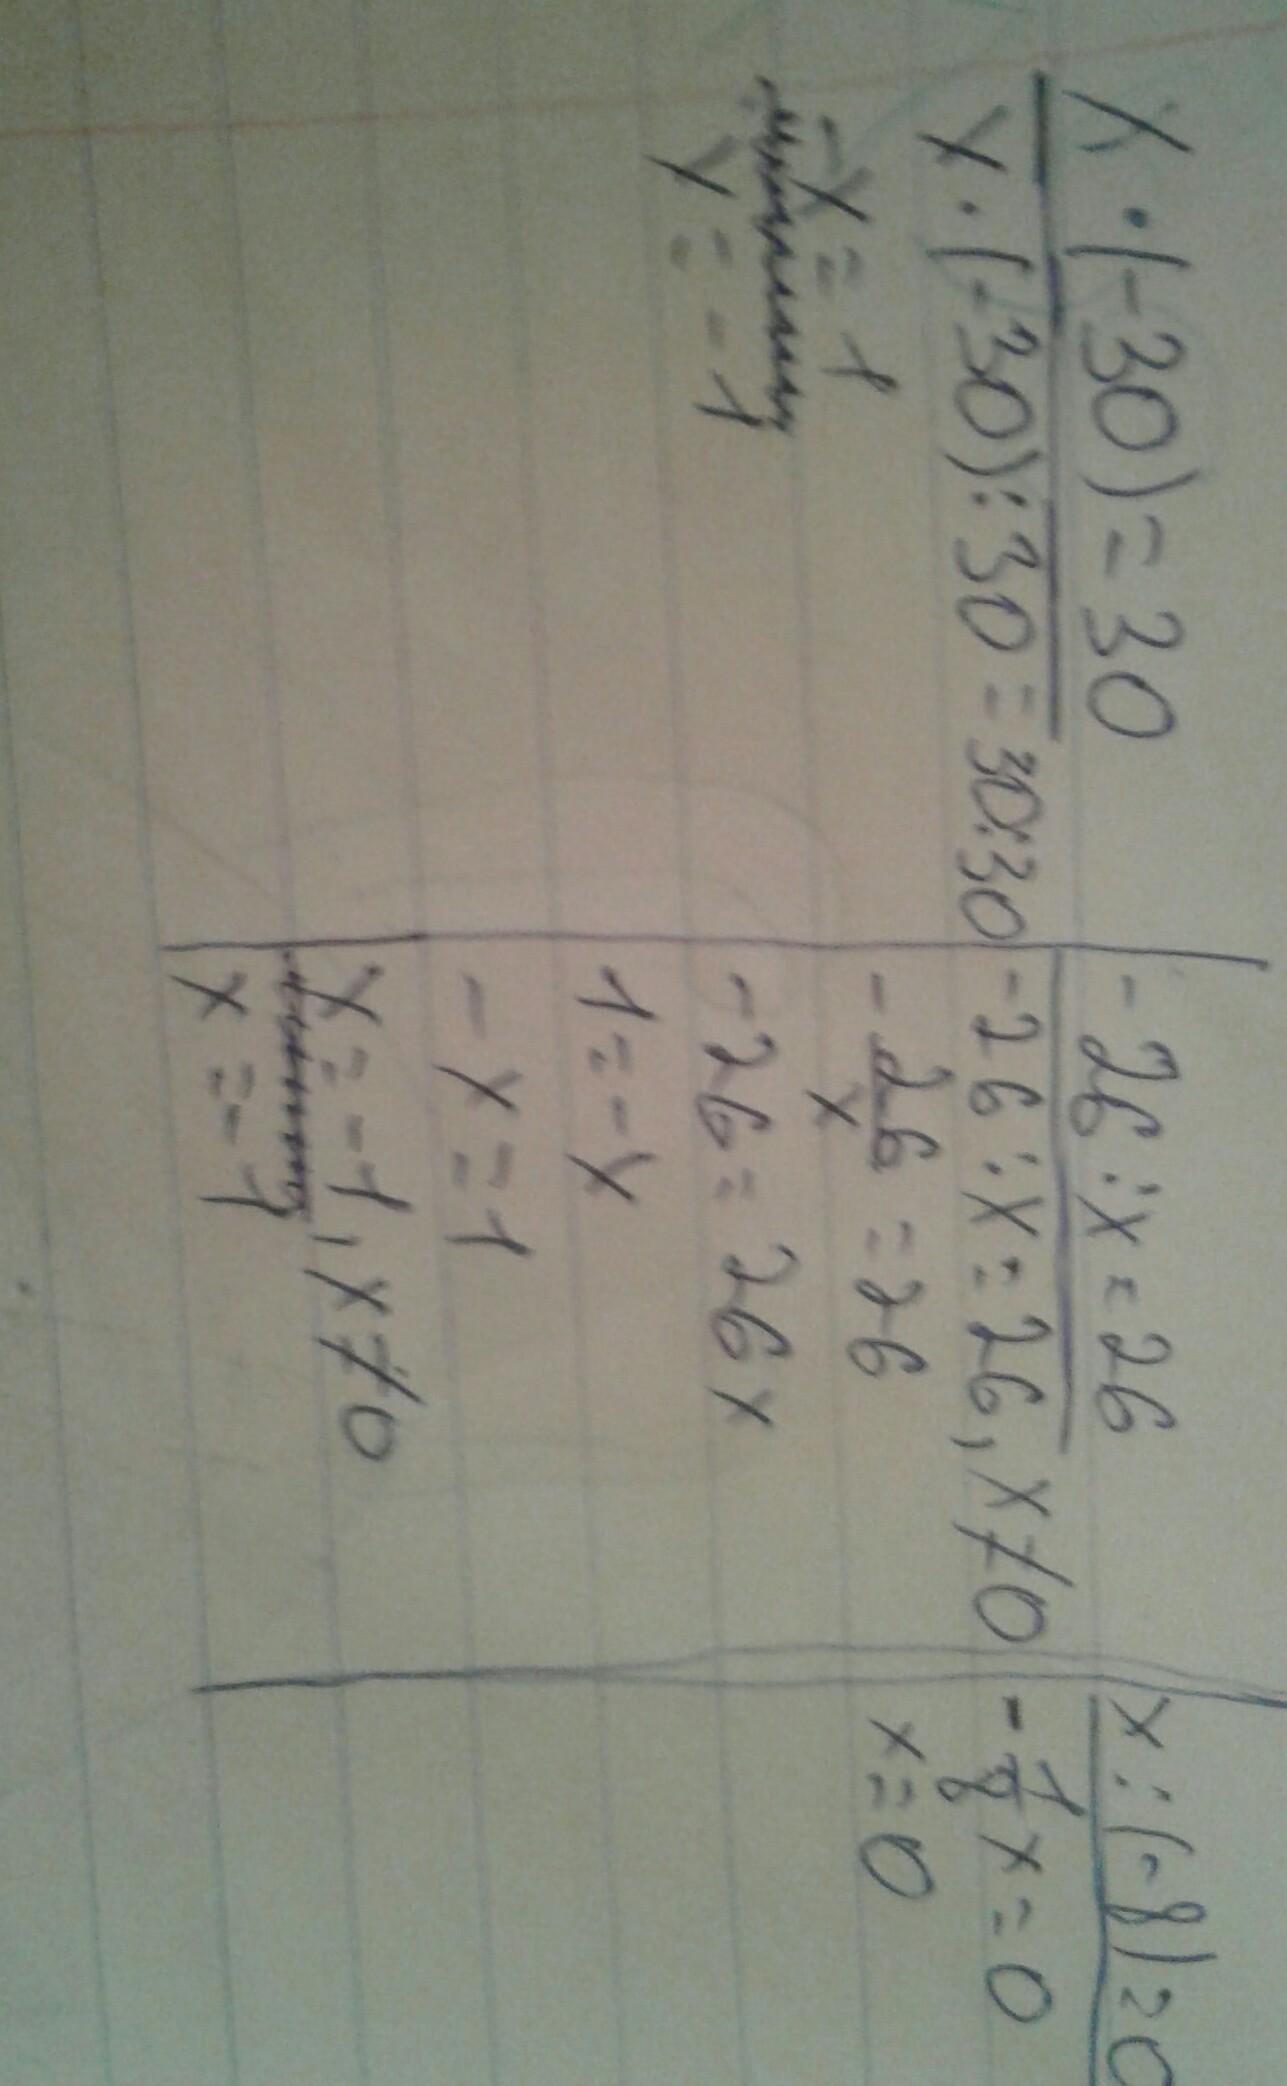 x · (-30) = 30
x · (-30) : 30 = 30:30
-x = 1
x = -1
-26 : x = 26
-26 : x = 26, x ≠ 0
- 26/x = 26
-26 = 26x
1 = -x
-x = 1
x = -1, x ≠ 0
x = -1
x : (-8) = 0
- 1/8 x = 0
x = 0